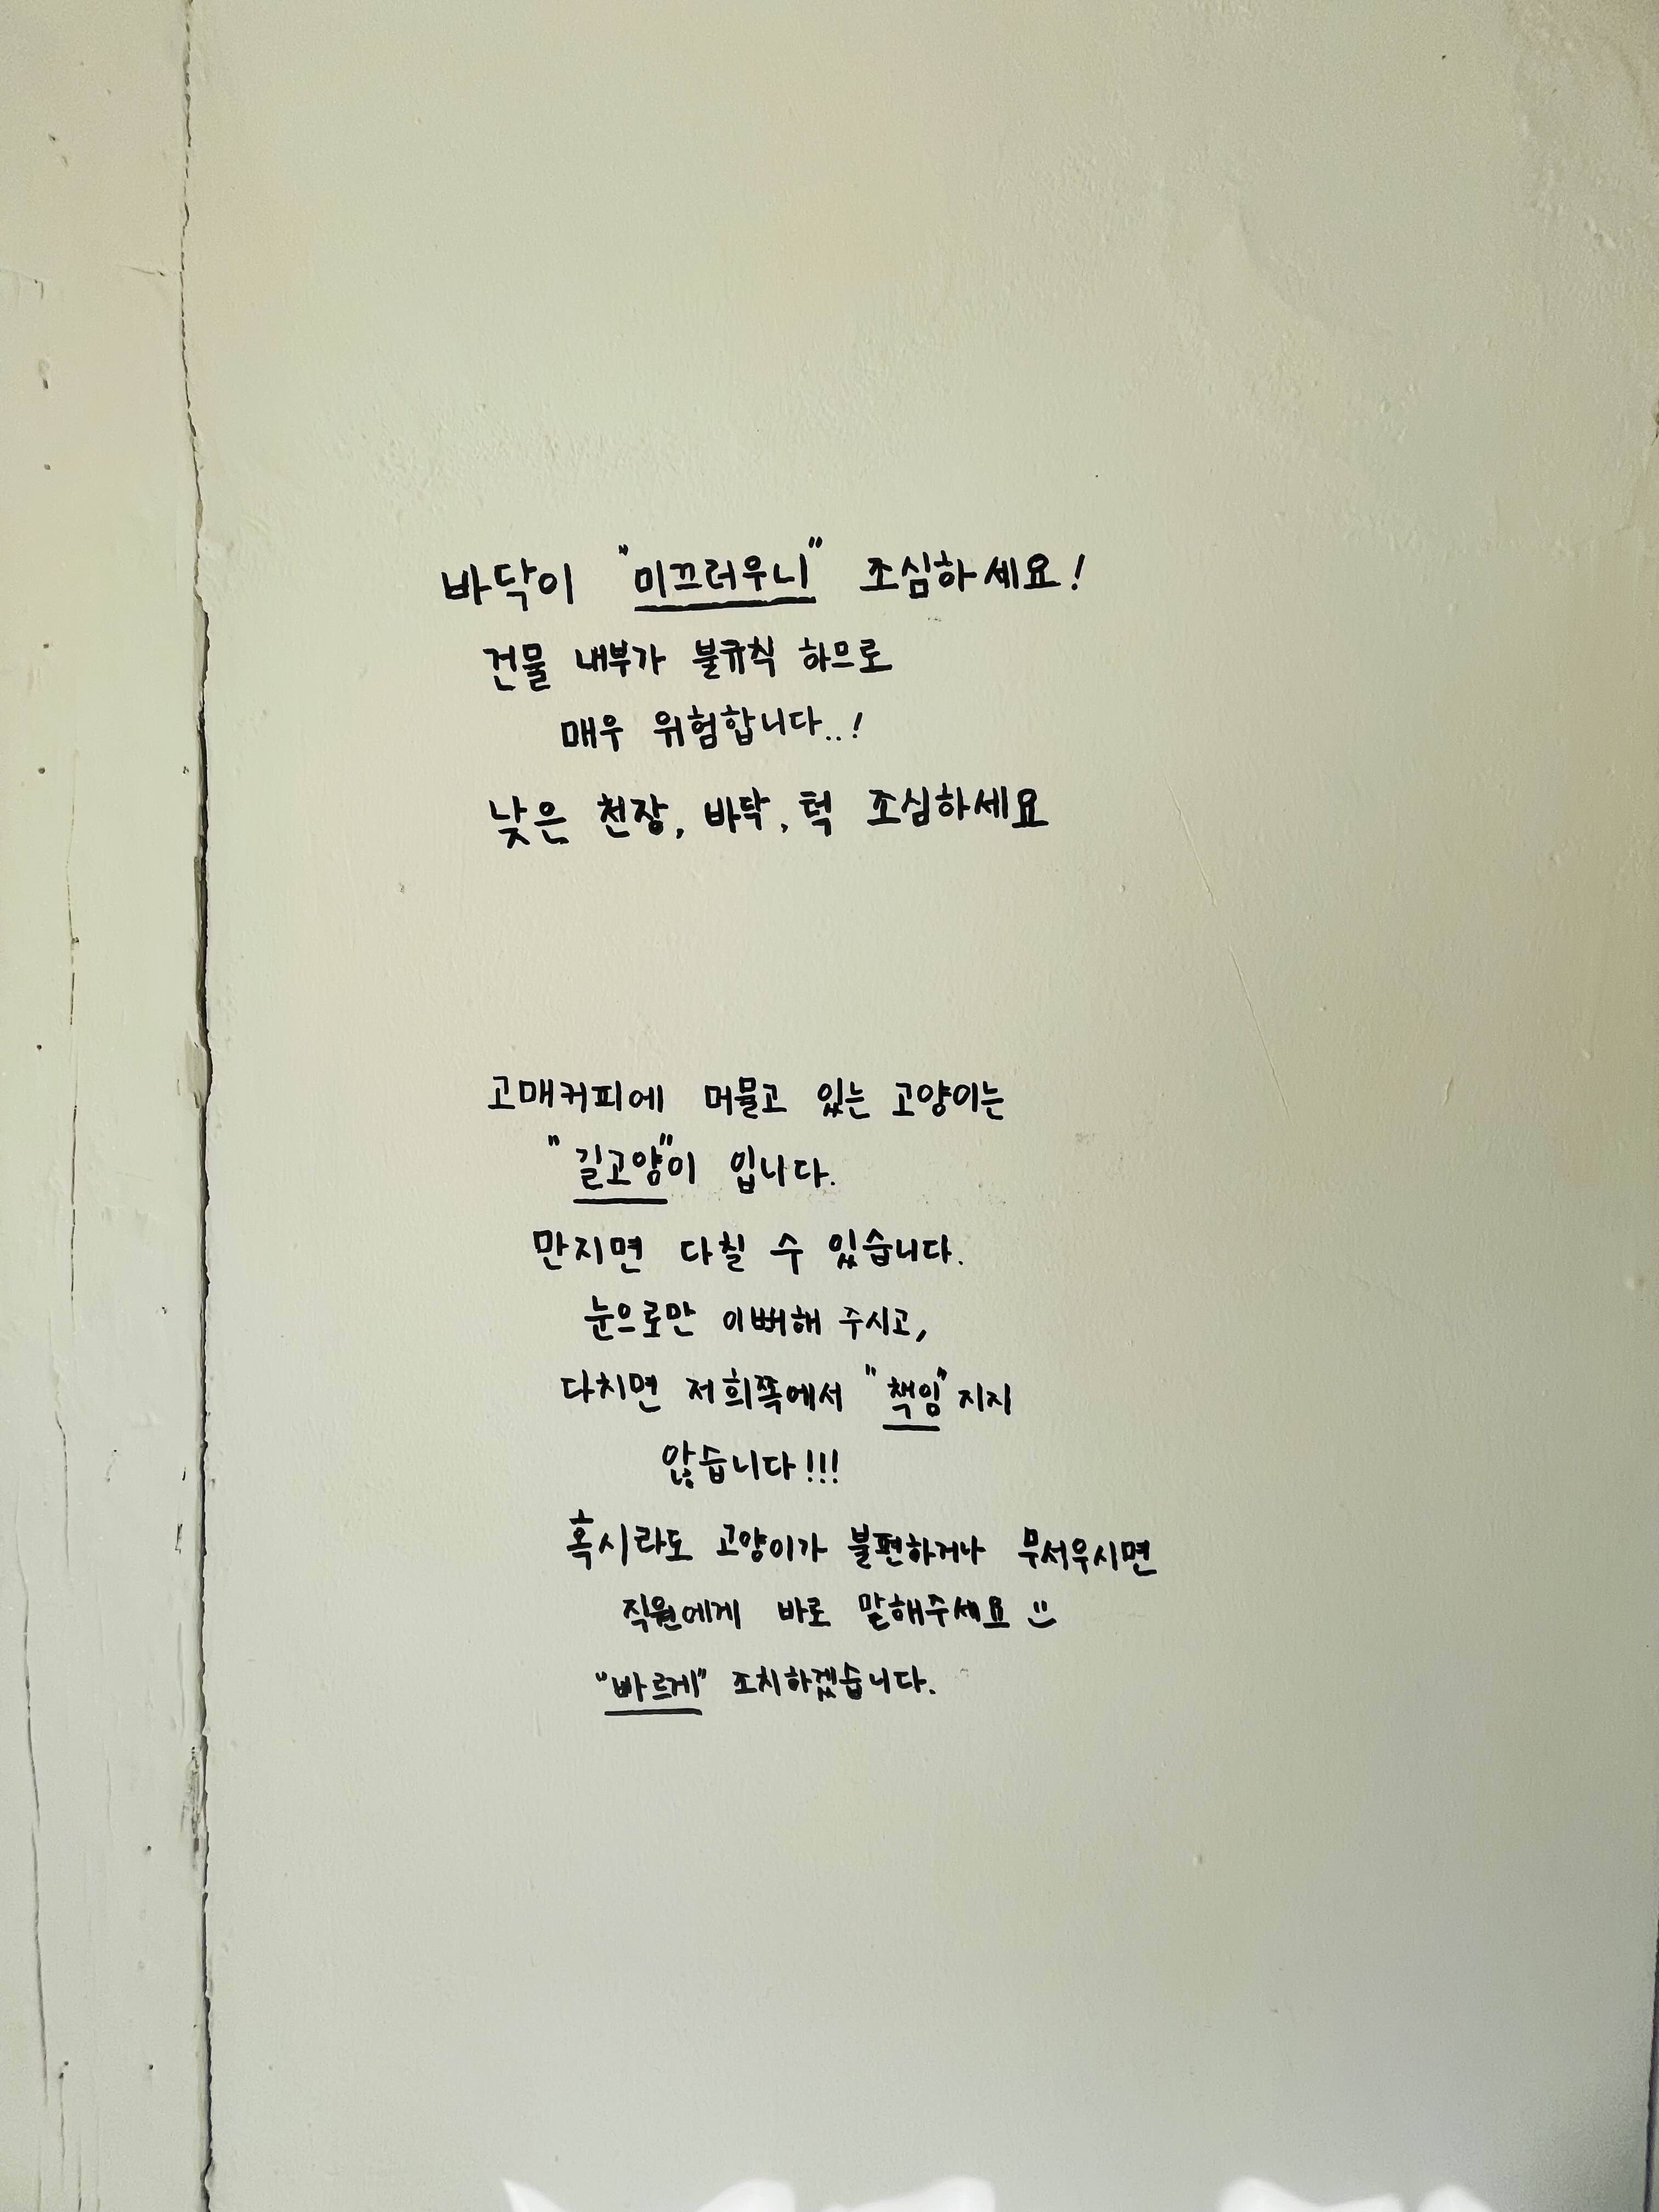 바닥이 "미끄러우니" 조심하세요!
건물 내부가 불규칙 하므로
매우 위험합니다..!
낮은 천장, 바닥, 턱 조심하세요
고매커피에 머물고 있는 고양이는
"길고양"이 입니다.
만지면 다칠 수 있습니다.
눈으로만 이뻐해 주시고,
다치면 저희쪽에서 "책임"지지
않습니다!!!
혹시라도 고양이가 불편하거나 무서우시면
직원에게 바로 말해주세요 :)
"빠르게" 조치하겠습니다.